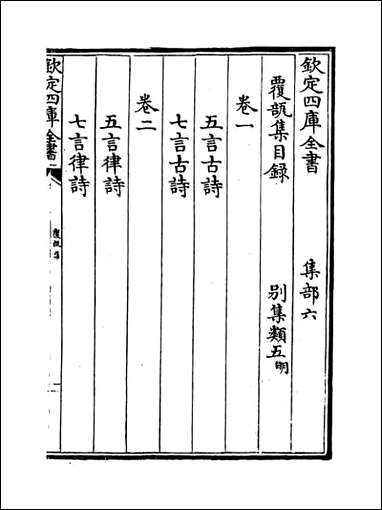 欽定四庫全書 集部六
覆瓿集目録 別集類五明
卷一
五言古詩
七言古詩
卷二
五言律詩
七言律詩
欽定四庫全書
覆瓿集
一